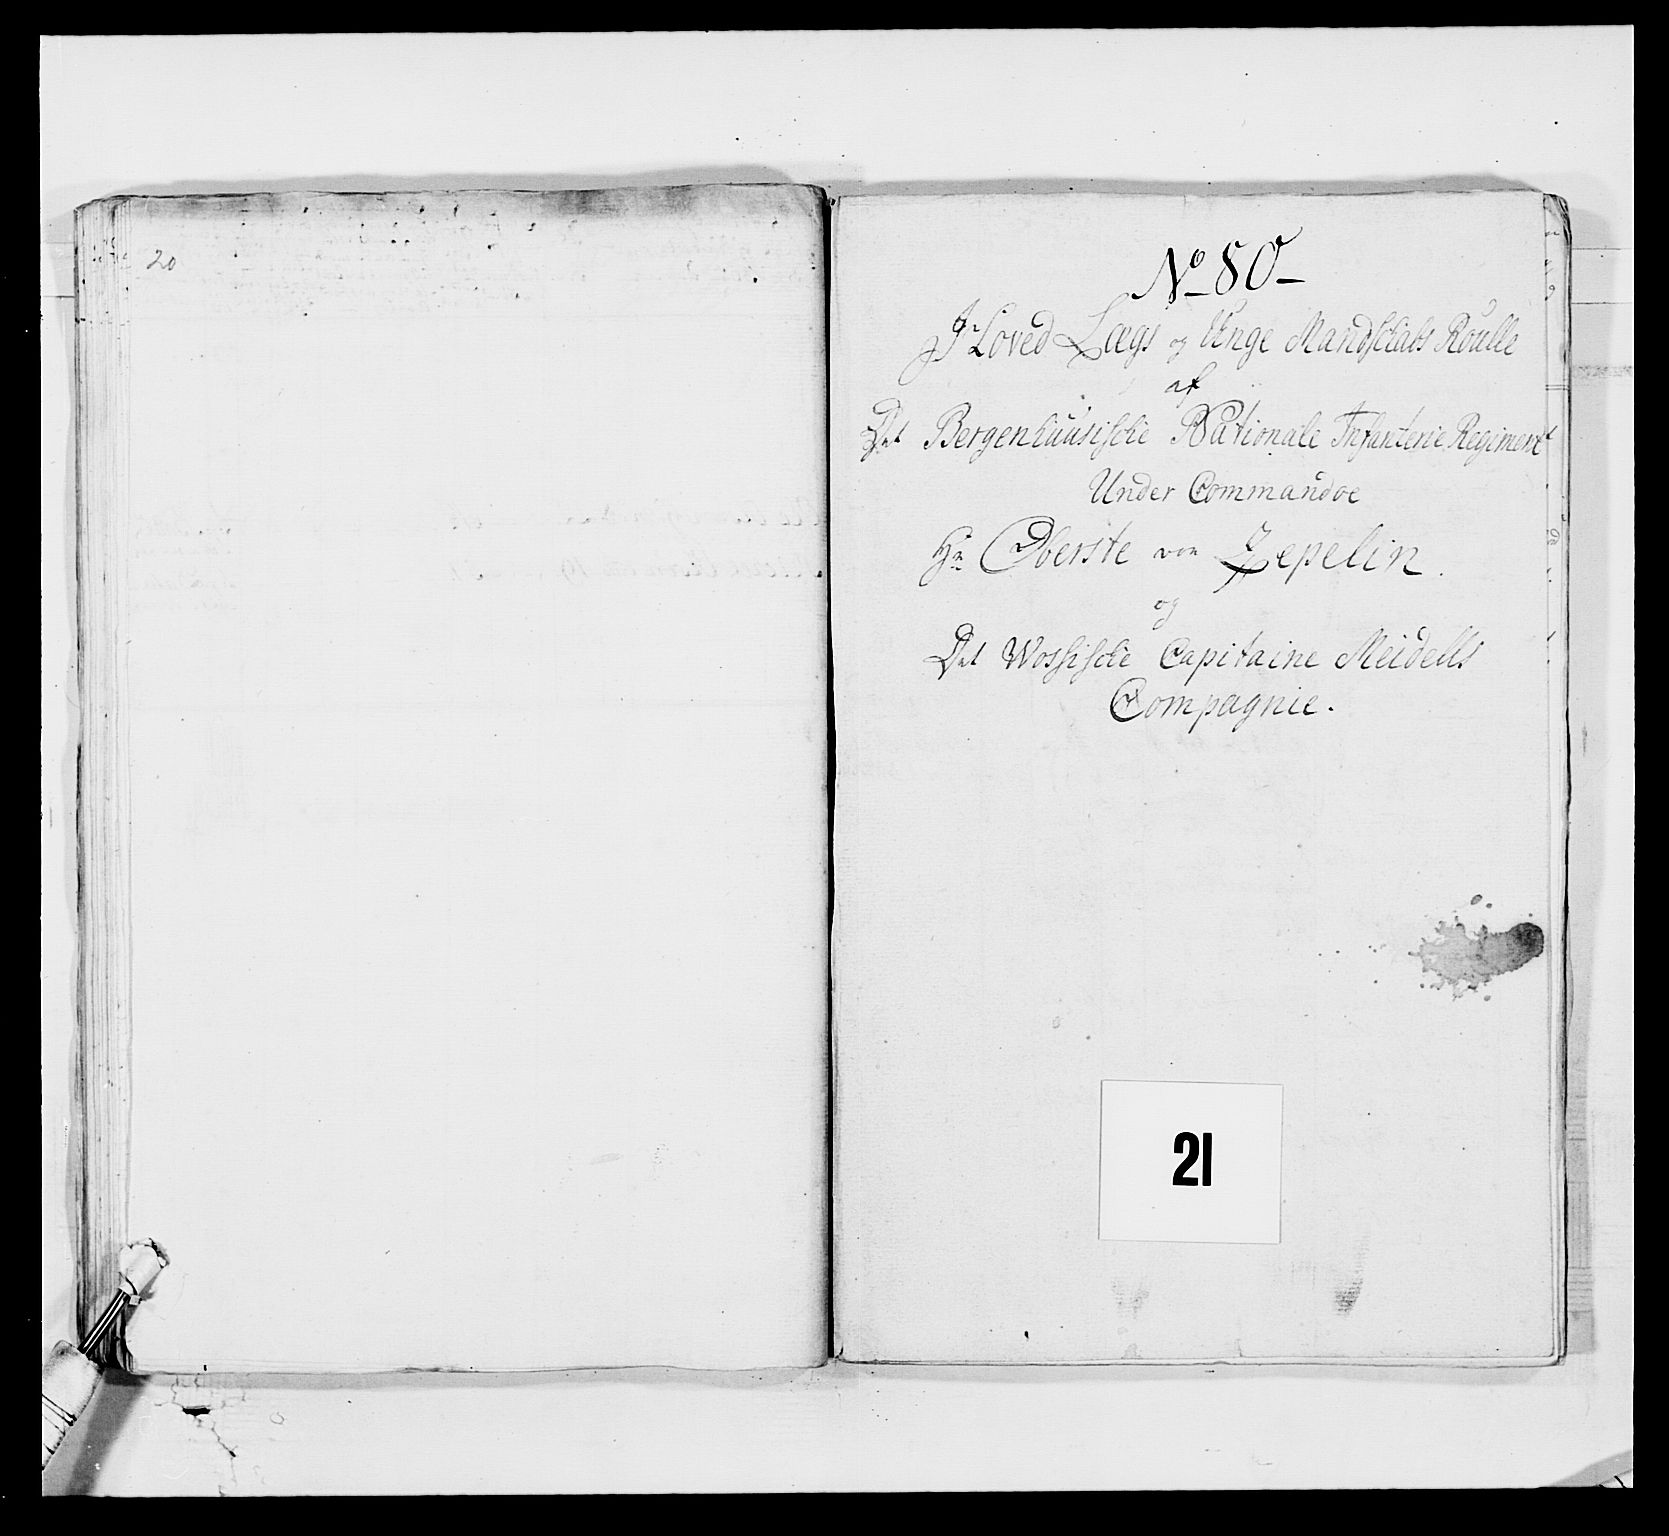 20
No 80
I Roved Lægs og Unge Mandskabs Roulle
af
Det Bergenhuusiske Nationale Infanterie Regiment
Under Commandoe
Hr Oberste von Zepelin.
og
Det Wossiske Capitaine Meidells
Compagnie.
21